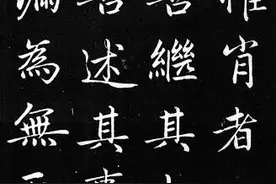 惟肖者
善繼其
善述其
為無